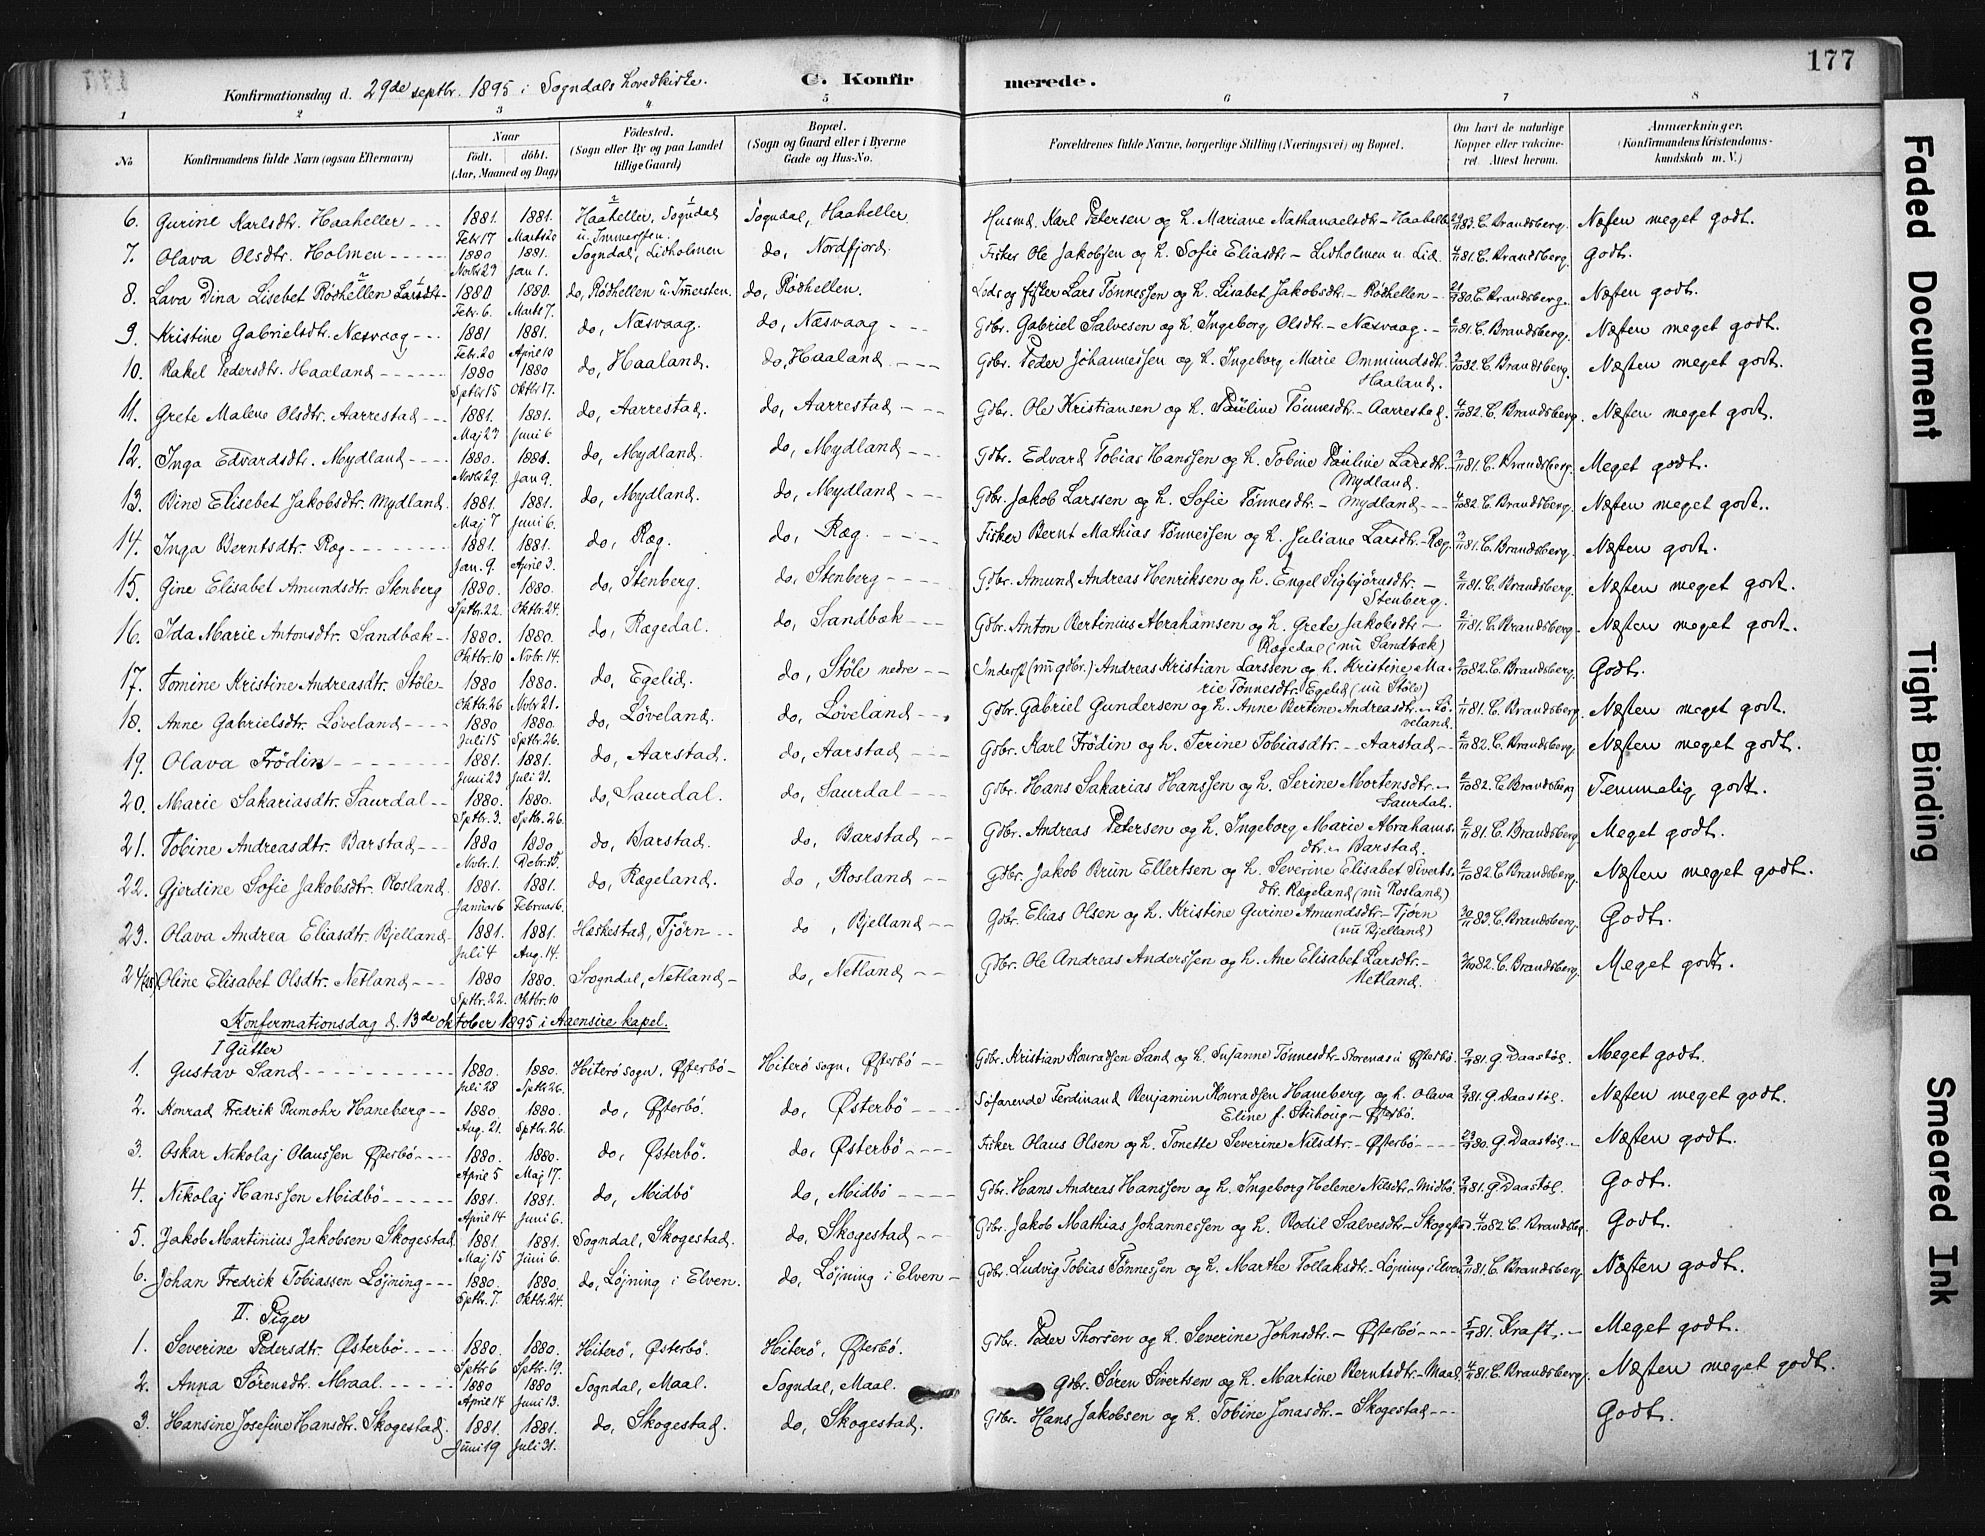 177
Konfirmationsdag d. 29de septbr. 1895 i Sogndals hovedkirke.
C. Konfirmerede.
1 2 3 4 5 6 7 8
No Konfirmandens fulde Navn (ogsaa Efternavn) Naar født. døbt. (Aar, Maaned og Dag) Fødested. (Sogn eller By og paa Landet tillige Gaard) Bopæl. (Sogn og Gaard eller i Byerne Gade og Hus-No. Forældrenes fulde Navne, borgerlige Stilling (Næringsvei) og Bopæl. Om havt de naturlige Kopper eller vaccineret. Attest herom. Anmærkninger. (Konfirmandens Kristendomskundskab m. V.)
6. Gurine Karlsdtr. Haaheller 1881. Febr 17 1881. Marts 20 Haaheller, Sogndal u. Immerssen. Sogndal, Haaheller Husmd. Karl Petersen og h. Mariane Nathanaelsdtr - Haahelle C. Brandsberg. Næsten meget godt.
7. Olava Olsdtr. Holmen 1880 Novbr 29 1881. Jan 1. Sogndal, Lidholmen do, Nordfjord Fisker Ole Jakobsen og h. Sofie Eliasdtr - Lidholmen u. Lid. C. Brandsberg. Godt.
8. Lava Dina Lisebet Rödhellen Larsdtr 1880 Febr. 6. 1880. Marts 7. do, Rödhellen u. Immersten. do, Rödhellen. Lods og fisker Lars Tönnessen og h. Lisabet Jakobsdtr. - Röthellen - C. Brandsberg. Næsten godt.
9. Kristine Gabrielsdtr. Næsvaag 1881 Febr. 20 1881. April 10 do, Næsvaag. do, Næsvaag Gdbr. Gabriel Salvesen og h. Ingeborg Olsdtr. - Næsvaag. C. Brandsberg. Næsten meget godt.
10. Rakel Pedersdtr. Haaland 1880 Septbr 15 1880 Oktbr 17. do, Haaland. do, Haaland Gdbr. Peder Johannessen og h. Ingeborg Marie Ommundsdtr. Haaland. C. Brandsberg. Næsten meget godt.
11. Grete Malene Olsdtr. Aarrestad 1881. Maj 23 1881. Juni 6 do, Aarrestad. do, Aarrestad Gdbr. Ole Kristiansen og h. Pauline Tönnesdtr. - Aarrestad. C. Brandsberg. Næsten meget godt.
12. Inga Edvardsdtr. Mydland 1880. Novbr 29. 1881. Jan 9. do, Mydland. do, Mydland Gdbr. Edvard Tobias Hanssen og h. Tobine Pauline Larsdtr. Mydland. C. Brandsberg. Meget godt.
13. Bine Elisebet Jakobsdtr. Mydland. 1881. Maj 7 1881. Juni 6. do, Mydland. do, Mydland Gdbr. Jakob Larssen og h. Sofie Tönnesdtr. - Mydland C. Brandsberg. Næsten meget godt.
14. Inga Berntsdtr. Ræg 1881. Jan. 9. 1881. April 3. do, Ræg. do, Ræg. Fisker Bernt Mathias Tönnessen og h. Juliane Larsdtr. - Ræg. C. Brandsberg. Næsten godt.
15. Gine Elisabet Amundsdtr. Stenberg 1880. Sptbr. 22. 1880. Oktbr. 24. do, Stenberg. do, Stenberg Gdbr. Amund Andreas Henriksen og h. Engel Sigbjörnsdtr. - Stenberg. C. Brandsberg. Næsten meget godt.
16. Ida Marie Antonsdtr. Sandbæk 1880. Oktbr. 10 1880. Novbr. 14. do, Rægedal. do, Sandbæk Gdbr. Anton Bertinius Abrahamsen og h. Grete Jakobsdtr - Rægedal (nu Sandbæk) C. Brandsberg. Næsten meget godt.
17. Tomine Kristine Andreasdtr. Stöle 1880 Oktbr. 26 1880. Novbr 21. do, Egelid. do, Stöle nedre Inderst (nu gdbr.) Andreas Kristian Larssen og h. Kristine Marie Tönnesdtr. Egelid (nu Stöle) C. Brandsberg. Godt.
18. Anne Gabrielsdtr. Löveland 1880 Juli 15 1880. Sptbr. 26. do, Löveland. do, Löveland Gdbr. Gabriel Gundersen og h. Anne Bertine Andreasdtr. - Löveland. C. Brandsberg. Næsten meget godt.
19. Olava Frödin 1881. Juni 23 1881. Juli 31. do, Aarstad. do, Aarstad Gdbr. Karl Frödin og h. Terine Tobiasdtr. - Aarstad C. Brandsberg. Næsten meget godt.
20. Marie Sakariasdtr. Saurdal 1880. Sptbr. 3. 1880. Sptbr. 26. do, Saurdal. do, Saurdal Gdbr. Hans Sakarias Hanssen og h. Serine Mortensdtr. - Saurdal. C. Brandsberg Temmelig godt.
21. Tobine Andreasdtr. Barstad 1880 Novbr. 1. 1880 Debr. do, Barstad. do, Barstad Gdbr. Andreas Petersen og h. Ingeborg Marie Abrahamsdtr. - Barstad. C. Brandsberg Meget godt.
22. Gjerdine Sofie Jakobsdtr. Rosland. 1881. Januar 6 1881. Februar 6. do, Rægeland. do, Rosland Gdbr. Jakob Brun Ellertsen og h. Severine Elisabet Sivertsdtr. Rægeland (nu Rosland) C. Brandsberg. Næsten meget godt.
23. Olava Andrea Eliasdtr. Bjelland 1881. Juli 4 1881. Aug. 14. Heskestad, Tjörn do, Bjelland Gdbr. Elias Olsen og h. Kristine Gurine Amundsdtr. - Tjörn (nu Bjelland) C. Brandsberg. Godt.
24 Oline Elisabet Olsdtr. Netland 1880 Sptbr. 22. 1880. Oktbr. 10 Sogndal, Netland do, Netland Gdbr. Ole Andreas Anderssen og h. Ane Elisabet Larsdtr. - Netland. C. Brandsberg. Meget godt.
Konfermationsdag d. 13de oktober 1895 i Aaensire kapel.
I Gutter
1. Gustav Sand 1880. Juli 28 1880. Sptbr 26. Hiterö sogn, Østerbö Hiterö sogn, Østerbö Gdbr. Kristian Konradsen Sand og h. Susanne Tönnesdtr - Østerbö. G. Daastöl. Meget godt.
2. Konrad Fredrik Rumohr Haneberg 1880. Aug. 21. 1880. Sptbr. 26. do, Østerbö. do, Østerbö Söfarende Ferdinand Benjamin Konradsen Haneberg og h. Olava Eline f. - Østerbö. G. Daastöl. Næsten meget godt.
3. Oskar Nikolaj Olaussen Østerbö 1880. April 5 1880. Maj 17. do, Østerbö. do, Østerbö Fisker Olaus Olsen og h. Tonette Severine Nilsdtr. - Østerbö G. Daastöl. Næsten godt.
4. Nikolaj Hanssen Midbö 1881. April 14 1881. Juni 6. do, Midbö do, Midbö Gdbr. Hans Andreas Hanssen og h. Ingeborg Helene Nilsdtr - Midbö. G. Daastöl. Godt.
5. Jakob Martinius Jakobsen Skogestad 1881. Maj 15 1881. Juni 6. Sogndal, Skogestad. do, Skogestad Gdbr. Jakob Mathias Johannessen og h. Bodil Salvesdtr. - Skogestad. C. Brandsbg. Godt.
6. Johan Fredrik Tobiassen Löjning 1880. Sptbr. 7. 1880. Oktbr. 24. do, Löjning i Elven. do, Löjning i Elven Gdbr. Ludvig Tobias Tönnessen og h. Marthe Tollaksdtr. - Löjning i Elven C. Brandsberg Næsten godt.
II. Piger
1. Severine Pedersdtr. Østerbö 1880. Sptbr 6 1880. Sptbr. 19. Hiterö, Østerbö. Hiterö, Østerbö. Gdbr. Peder Thorsen og h. Severine Johnsdtr. - Østerbö Kraft. Meget godt.
2. Anna Sörensdtr. Maal. 1880 April 14 1880 Juni 13. Sogndal, Maal. Sogndal, Maal. Gdbr. Sören Sivertsen og h. Martine Berntsdtr. - Maal. C. Brandsberg. Næsten meget godt.
3. Hansine Josefine Hansdtr. Skogestad. 1881. Juni 19 1881. Juli 31. do, Skogestad. do, Skogestad. Gdbr. Hans Jakobsen og h. Tobine Jonasdtr. - Skogestad Godt.
Faded Document
Tight Binding
Smeared Ink